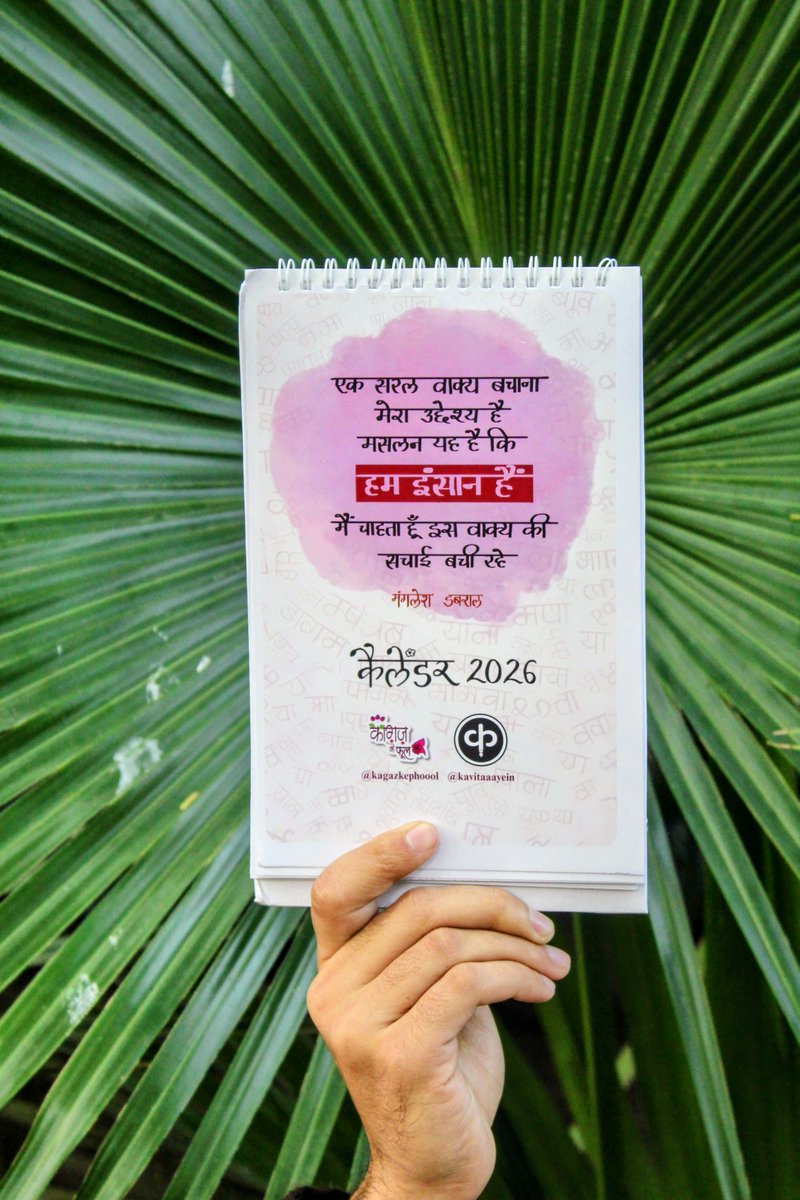 एक सरल वाक्य बचाना
मेरा उद्देश्य है
मसलन यह है कि
हम इंसान हैं
मैं चाहता हूँ इस वाक्य की
सचाई बची रहे
मंगलेश डबराल
कैलेंडर 2026
काग़ज़
के फूल
क
@kagazkephoool @kavitaaayein